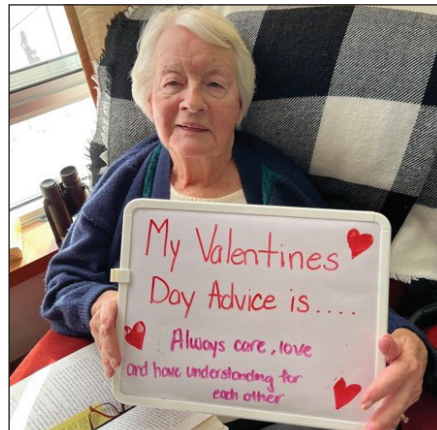 My Valentines
Day Advice is....
Always care, love
and have understanding for
each other